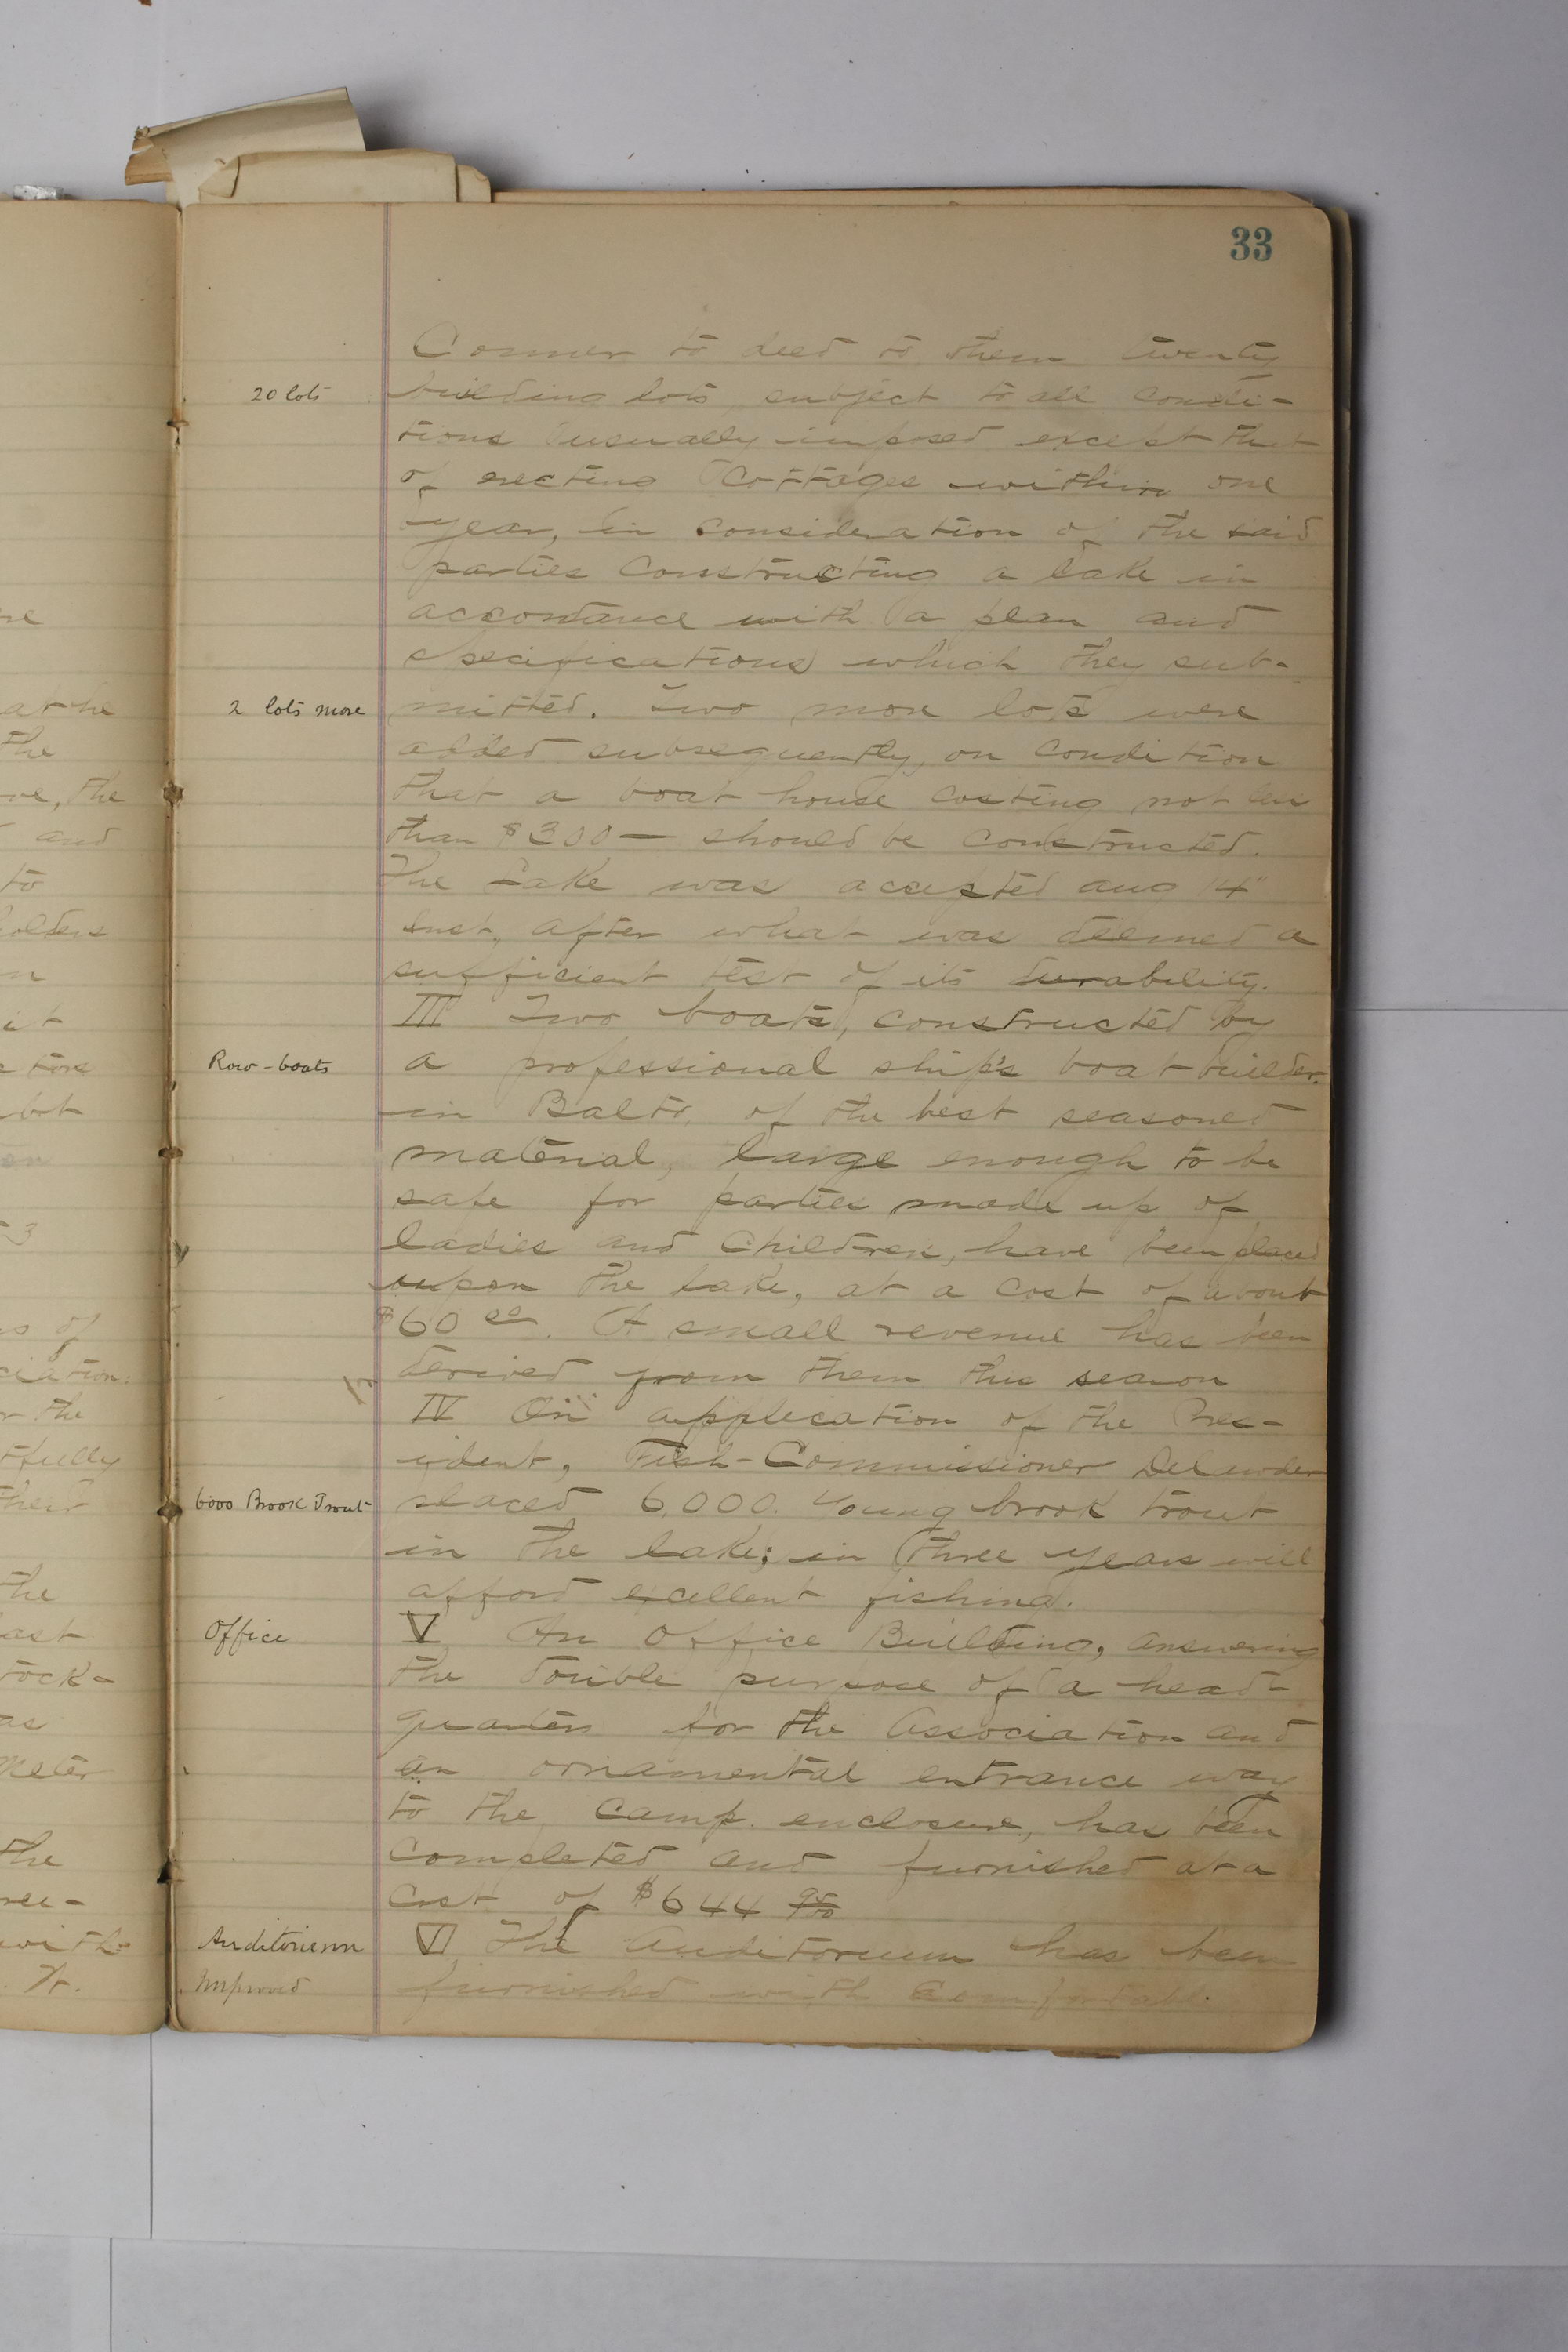 33
Conner to deed to them twenty
20 lots
building lots, subject to all condi-
tions usually imposed except that
of erecting Cottages within one
year, in consideration of the said
parties constructing a lake in
accordance with a plan and
specifications which they sub-
2 lots more
mitted. Two more lots were
added subsequently, on condition
that a boat house costing not less
than $300— should be constructed.
The Lake was accepted Aug 14"
inst., after what was deemed a
sufficient test of its durability.
III Two boats, constructed by
Row-boats
a professional ship's boat builder
in Balto. of the best seasoned
material, large enough to be
safe for parties made up of
ladies and children, have been placed
upon the lake, at a cost of about
$60 00. A small revenue has been
derived from them this season
IV On application of the Pres-
ident, Fish-Commissioner Delawder
6000 Brook Trout
placed 6,000. young brook trout
in the lake; in three years will
afford excellent fishing.
Office
V An Office Building, answering
the double purpose of a head-
quarters for the Association and
an ornamental entrance way
to the camp enclosure, has been
completed and furnished at a
cost of $644
Auditorium
VI The Auditorium has been
Improved
furnished with comfortable
at he
the
ve, the
and
to
holders
it
but
3
s of
ciation.
r the
tfully
their
the
last
tock-
as
meter
the
ree-
with